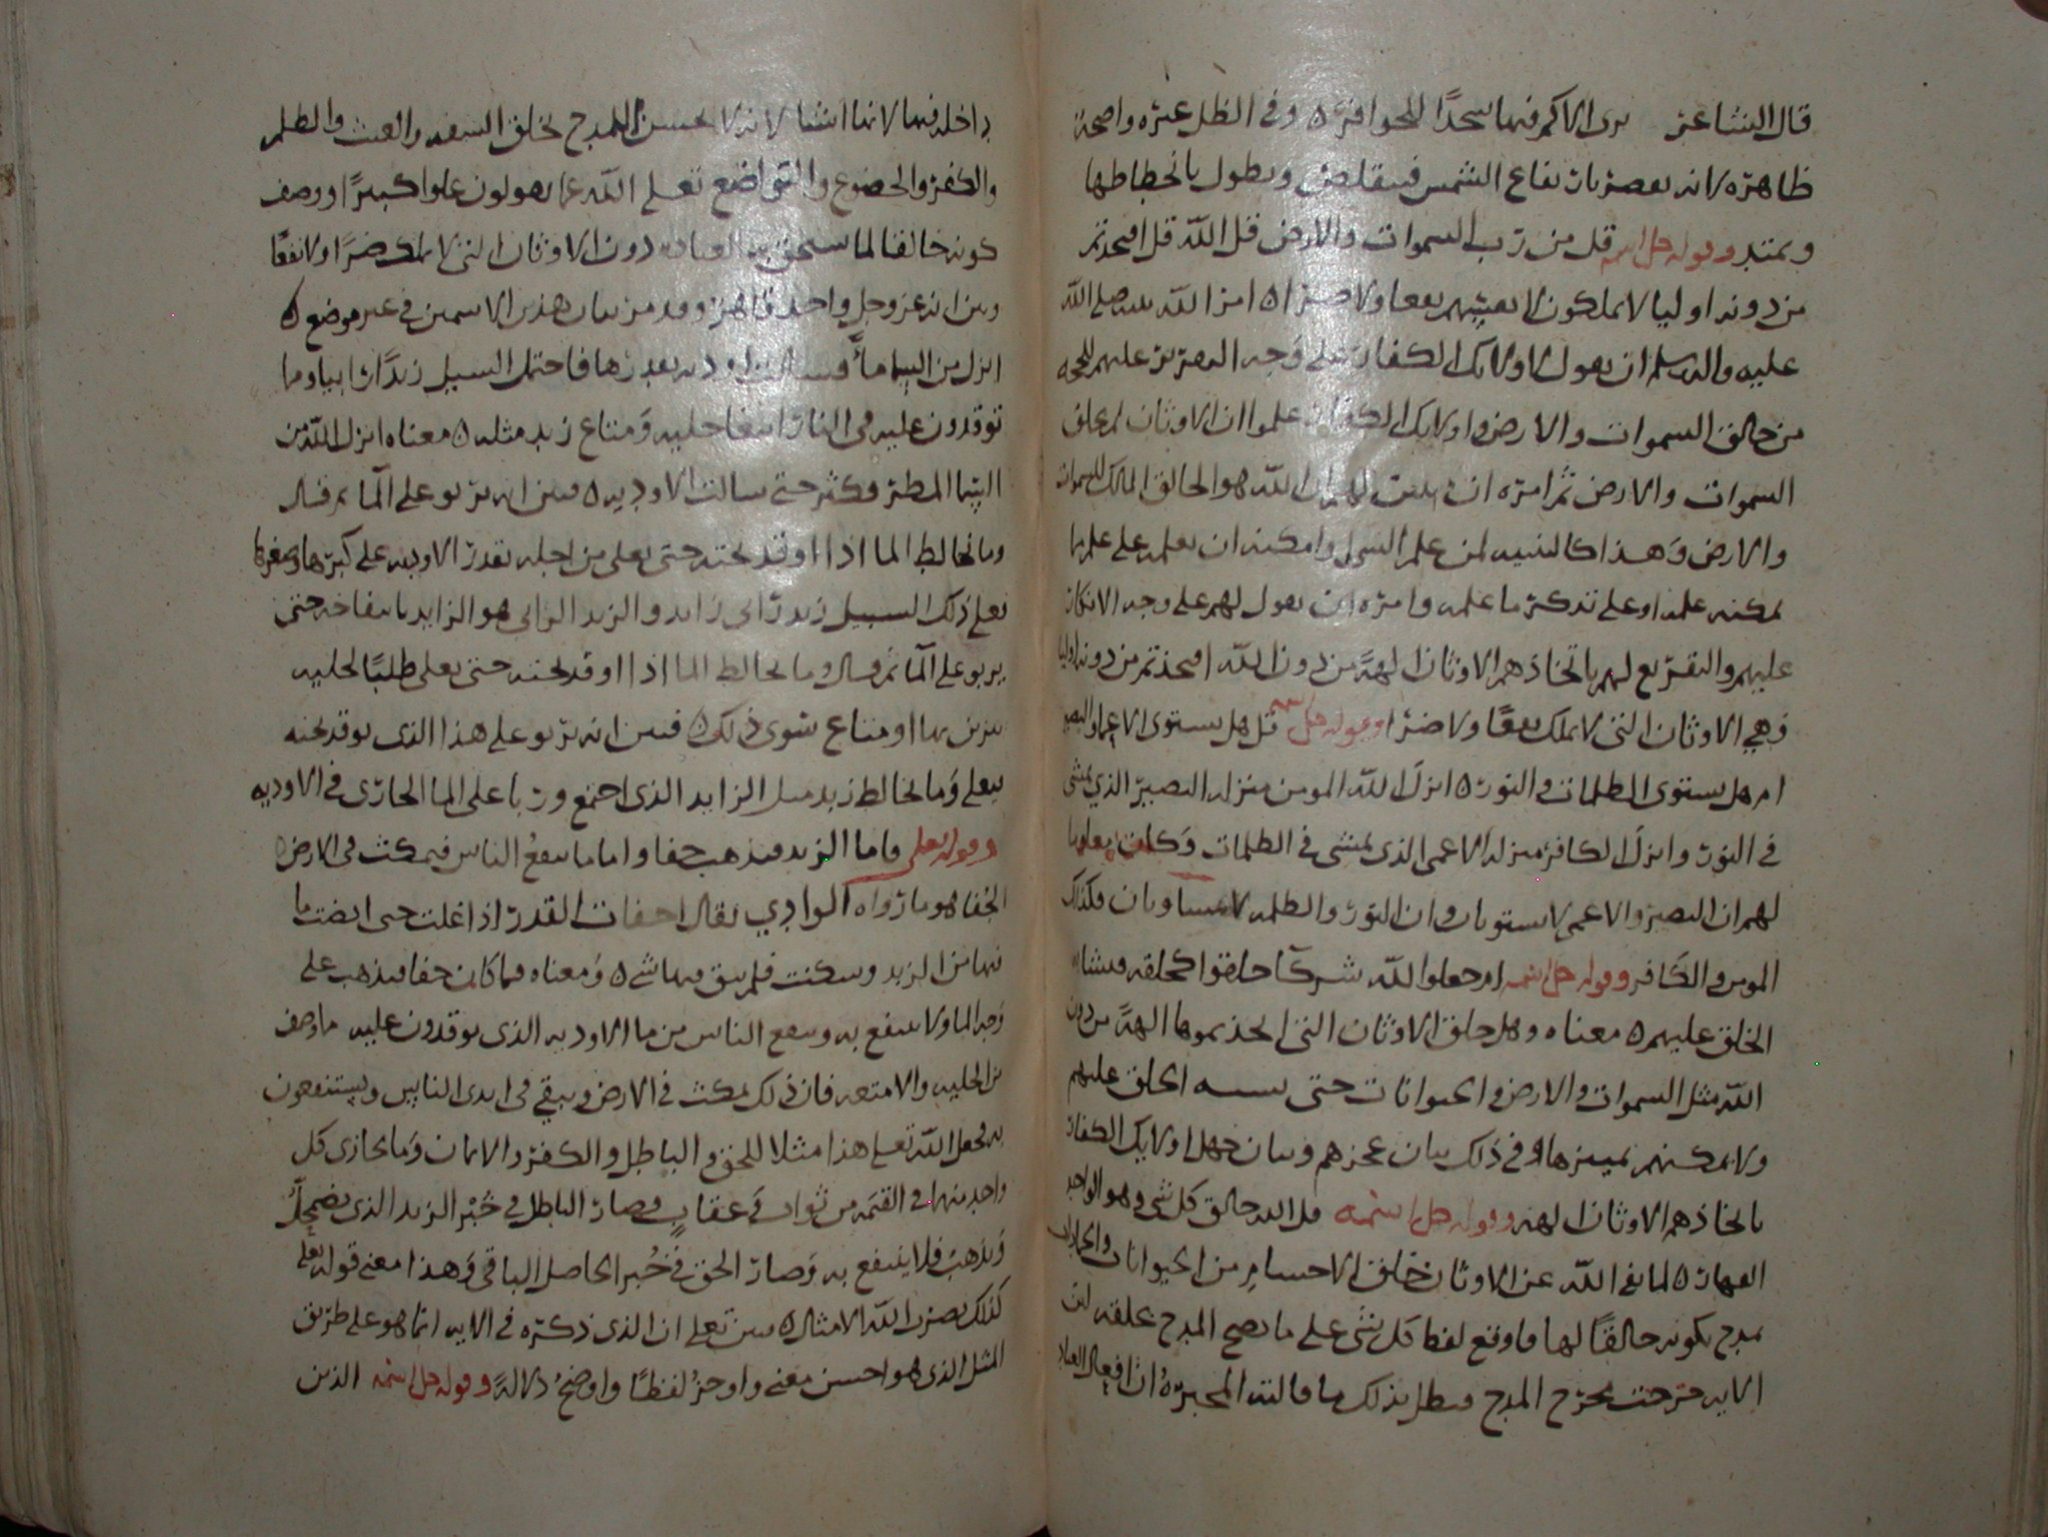 قال الشاعر ترى الاكم فيها سجدا للحوافر ه وفي الظل عبرة واضحة
ظاهرة لانه يقصر بارتفاع الشمس فيتقلص ويطول بانحطاطها
ويمتد وقوله جل اسمه قل من رب السموات والارض قل الله قل افتخذتم
من دونه اوليا لا يملكون لانفسهم نفعا ولا ضرا ه امر الله نبيه صلى الله
عليه واله وسلم ان يقول لاولايك الكفار على وجه التقرير عليهم للحجة
من خالق السموات والارض واولايك الكفار علموا ان الاوثان لم تخلق
السموات والارض ثم امره ان يثبت لهم ان الله هو الخالق المالك للسموات
والارض وهذا كالتنبيه لمن علم الشي وامكنه ان يعلمه على علم ما
يمكنه علمه او على تذكر ما علمه وامره ان يقول لهم على وجه الانكار
عليهم والتقريع لهم باتخاذهم الاوثان الهة من دون الله افتخذتم من دونه اوليا
وهي الاوثان التي لا تملك نفعا ولا ضرا وقوله جل اسمه قل هل يستوى الاعما والبصير
ام هل يستوى الظلمات والنور ه انزل الله المومن منزلة البصير الذي يمشى
في النور وانزل الكافر منزلة الاعمى الذى يمشى في الظلمات وكان معلوما
لهم ان البصير والاعمى لا يستويان وان النور والظلمه لا يتساويان فكذلك
المومن والكافر وقوله جل اسمه ام جعلوا لله شركا خلقوا كخلقه فتشابه
الخلق عليهم ه معناه وهل خلق الاوثان التى اتخذتموها الهة من دون
الله مثل السموات والارض والحيوانات حتى يشبه الخلق عليهم
ولا يمكنهم تمييزها وفي ذلك بيان عجزهم وبيان جهل اولايك الكفار
باتخاذهم الاوثان الهة وقوله جل اسمه قل الله خالق كل شى وهو الواحد
القهار ه لما نفى الله عن الاوثان خلق الاجسام من الحيوانات والجمادات
تمدح بكونه خالقا لها فاوقع لفظ كل شى على ما يصح المدح بخلقه لان
الايه خرجت مخرج المدح فبطل بذلك ما قالته المجبرة ان افعال العباد
داخله فيها لانها اشيا لانه لا يحسن المدح بخلق السفه والعبث والظلم
والكفر والخضوع والتواضع تعلى الله عما يقولون علوا كبيرا ووصف
كونه خالقا لما يستحق به العباده دون الاوثان التى لا تملك ضرا ولا نفعا
وبين انه عز وجل واحد قاهر وقد مر بيان هذين الاسمين في غير موضع ه
انزل من السما ما فسالت اوديه بقدرها فاحتمل السيل زبدا رابيا وما
توقدون عليه في النار ابتغا حليه او متاع زبد مثله ه معناه انزل الله من
السما المطر وكثر حتى سالت الاوديه ه فبين انه يربو على الما ثم قال
وما يخالط الما اذا اوقد تحته حتى يغلى من اجله بقدر الاوديه على كبرها وصغرها
يعلى ذلك السيل زبد رابى زايد والزبد الرابى هو الزايد بانتفاخه حتى
يربو على الما ثم قال وما يخالط الما اذا اوقد تحته حتى يغلى طلبا لحليه
يتزين بها او متاع سوى ذلك فبين انه يربو على هذا الذى توقد تحته
ليغلى وما يخالط زبد مثل الزايد الذى اجتمع وربا على الما الجارى في الاوديه
وقوله تعلى فاما الزبد فيذهب جفا واما ما ينفع الناس فيمكث في الارض
الجفا هو ما رواه الوادي يقال اجفات القدر اذا غلت حتى انصب ما
فيها من الزبد وسكنت فلم يبق فيها شي ه ومعناه فما كان جفا فيذهب على
وجه الما ولا ينفع به وينفع الناس من ما الاوديه الذى توقدون عليه ما وصف
من الحليه والامتعه فان ذلك يمكث في الارض ويبقى في ايدى الناس ويستنفعون
به فجعل الله تعلى هذا مثلا للحق والباطل والكفر والايمان وما يجازى كل
واحد منها في القيمة من ثواب وعقاب وصار الباطل في خبر الزبد الذى يضمحل
ويذهب فلا ينفع به وصار الحق في خبر الحاصل الباقي وهذا معنى قوله تعلى
كذلك يضرب الله الامثال ه بين تعلى ان الذى ذكره في الايه انما هو على طريق
المثل الذى هو احسن معنى واوجز لفظا واوضح دلالة وقوله جل اسمه الذين